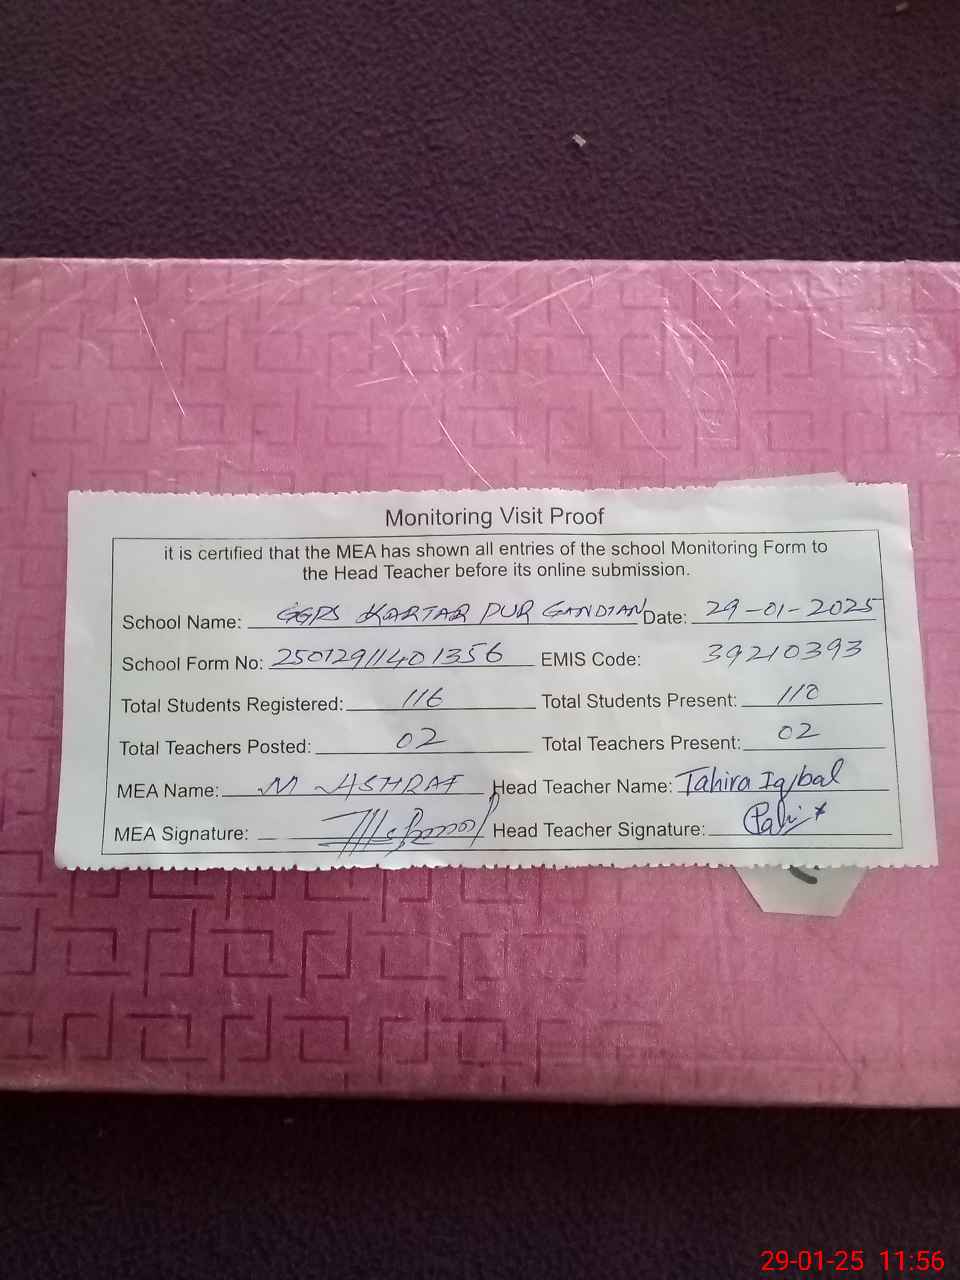 Monitoring Visit Proof
it is certified that the MEA has shown all entries of the school Monitoring Form to
the Head Teacher before its online submission.
School Name: GGPS KARTAR PUR GANDIAN Date: 29-01-2025
School Form No: 25012911401356 EMIS Code: 39210393
Total Students Registered: 116 Total Students Present: 110
Total Teachers Posted: 02 Total Teachers Present: 02
MEA Name: M ASHRAF Head Teacher Name: Tahira Iqbal
MEA Signature: Head Teacher Signature:
29-01-25 11:56